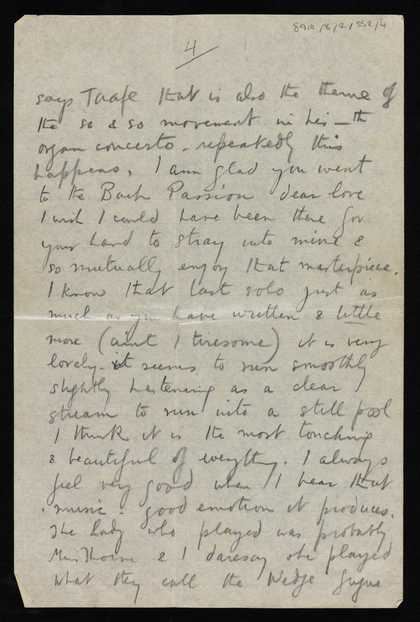 8912/6/2/552/4
4
says Taafe that is also the theme of
the so & so movement in his — th
organ concerto - repeatedly this
happens. I am glad you went
to the Bach Passion dear love
I wish I could have been there for
your hand to stray into mine &
so mutually enjoy that masterpiece.
I know that last solo just as
much as you have written & little
more (aint I tiresome) it is very
lovely - it seems to run smoothly
slightly hastening as a clear
stream to run into a still pool
I think it is the most touching
& beautiful of everything. I always
feel very good when I hear that
music - good emotion it produces.
The lady who played was probably
Mrs Thorne & I daresay she played
what they call the Wedge fugue